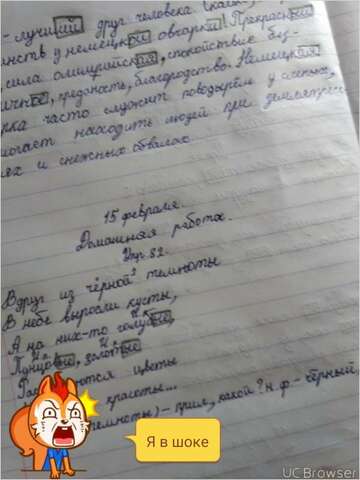 - лучший друг человека
инств у немецкой овчарки! Прекрасный
, сила олимпийская, спокойствие без-
ичное, преданность, благородство. Немецкая
рка часто служит поводырём у слепых,
могает находить людей при землетрясе-
ях и снежных обвалах.
15 февраля.
Домашняя работа.
Упр. 82.
Вдруг из чёрной темноты
В небе выросли кусты,
А на них-то голубые,
Пунцовые, золотые
цветы
красоты...
темноты) - прил., какой? н.ф. - чёрный
Я в шоке
UC Browser